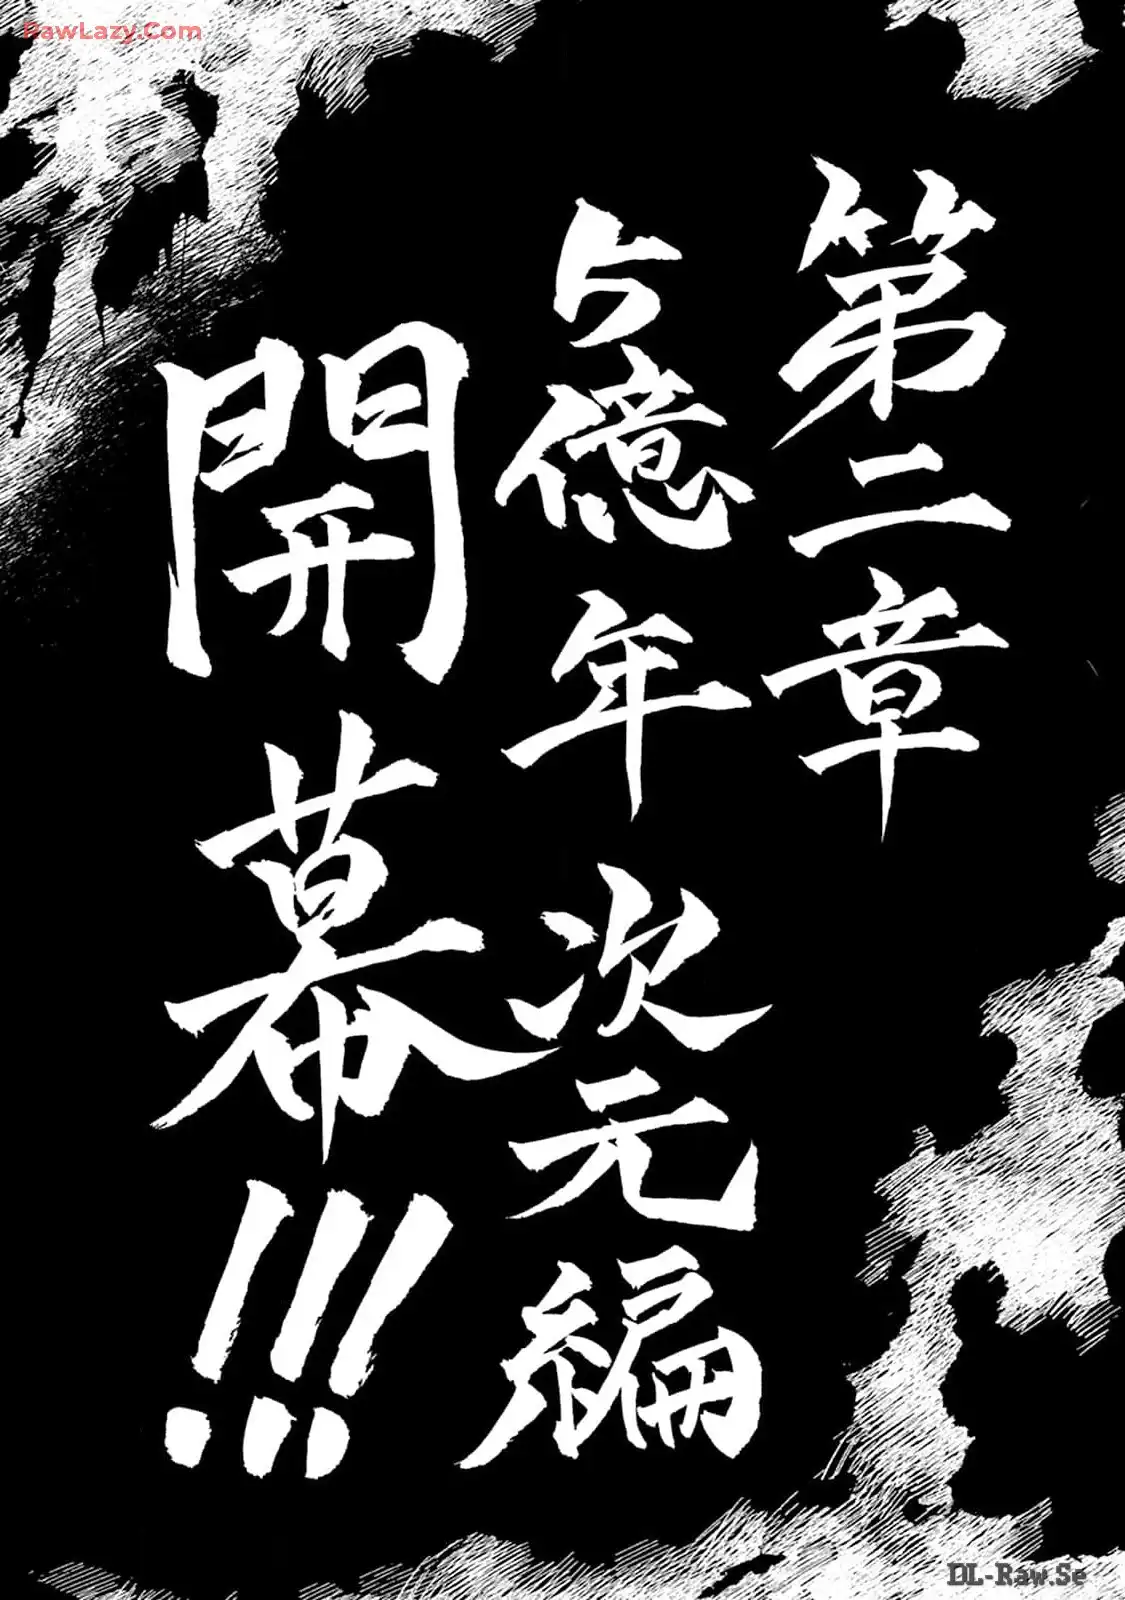 RawLazy.Com
第二章
5億年次元編
開幕!!!
DL-Raw.Se